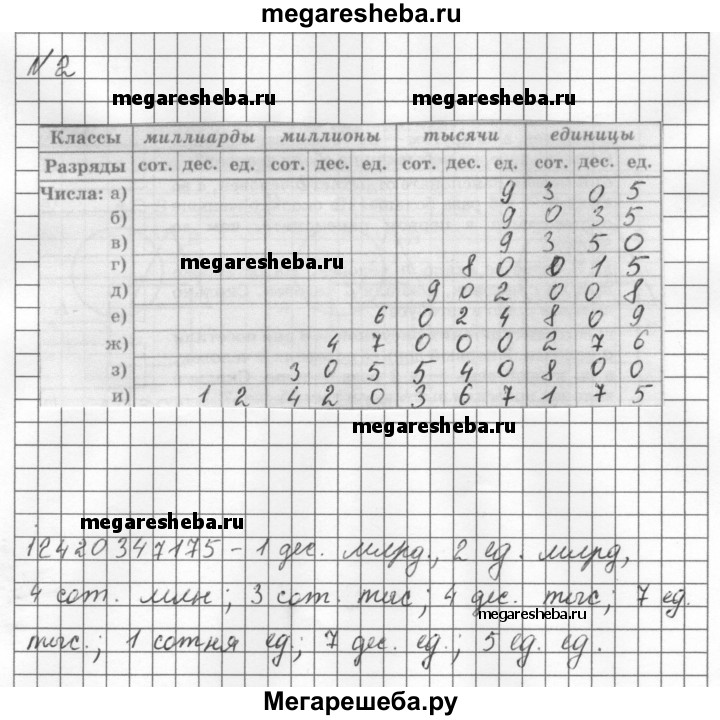 megaresheba.ru
N 2
megaresheba.ru megaresheba.ru
Классы миллиарды миллионы тысячи единицы
Разряды сот. дес. ед. сот. дес. ед. сот. дес. ед. сот. дес. ед.
Числа: а) 9 3 0 5
б) 9 0 3 5
в) 9 3 5 0
г) 8 0 0 1 5
megaresheba.ru
д) 9 0 2 0 0 8
е) 6 0 2 4 8 0 9
ж) 4 7 0 0 0 2 7 6
з) 3 0 5 5 4 0 8 0 0
и) 1 2 4 2 0 3 6 7 1 7 5
megaresheba.ru
megaresheba.ru
12420347175 - 1 дес. млрд., 2 ед. млрд,
4 сот. млн; 3 сот. тыс; 4 дес. тыс; 7 ед.
megaresheba.ru
тыс.; 1 сотня ед.; 7 дес. ед.; 5 ед. ед.
Мегарешеба.ру